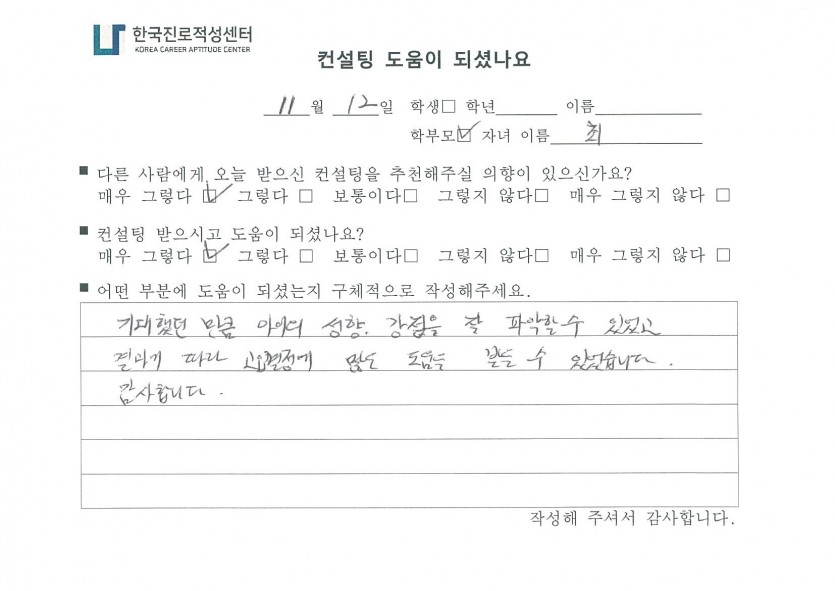 한국진로적성센터
KOREA CAREER APTITUDE CENTER
컨설팅 도움이 되셨나요
11월 12일 학생□ 학년 이름
학부모☑ 자녀 이름 최
■ 다른 사람에게 오늘 받으신 컨설팅을 추천해주실 의향이 있으신가요?
매우 그렇다 ☑ 그렇다 □ 보통이다□ 그렇지 않다□ 매우 그렇지 않다 □
■ 컨설팅 받으시고 도움이 되셨나요?
매우 그렇다 ☑ 그렇다 □ 보통이다□ 그렇지 않다□ 매우 그렇지 않다 □
■ 어떤 부분에 도움이 되셨는지 구체적으로 작성해주세요.
기대했던 만큼 아이의 성향, 강점을 잘 파악할 수 있었고
결과에 따라 많은 도움을 받을 수 있었습니다.
감사합니다.
작성해 주셔서 감사합니다.